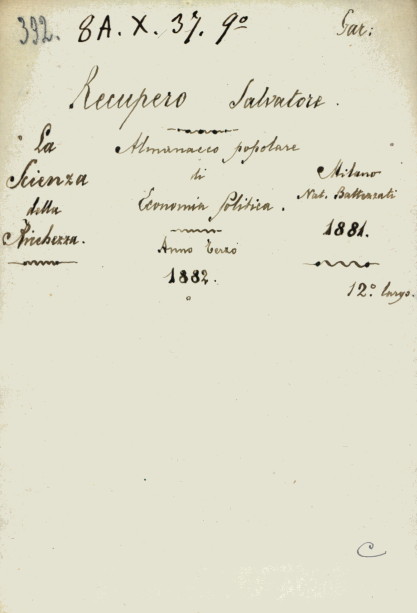 392. 8A. X. 37. 9º Gar:
Recupero Salvatore.
La
Scienza
della
Richezza.
Almanacco popolare
di
Economia Politica.
Anno Terzo
1882.
Milano
Nat. Battezzati
1881.
12º largo.
C